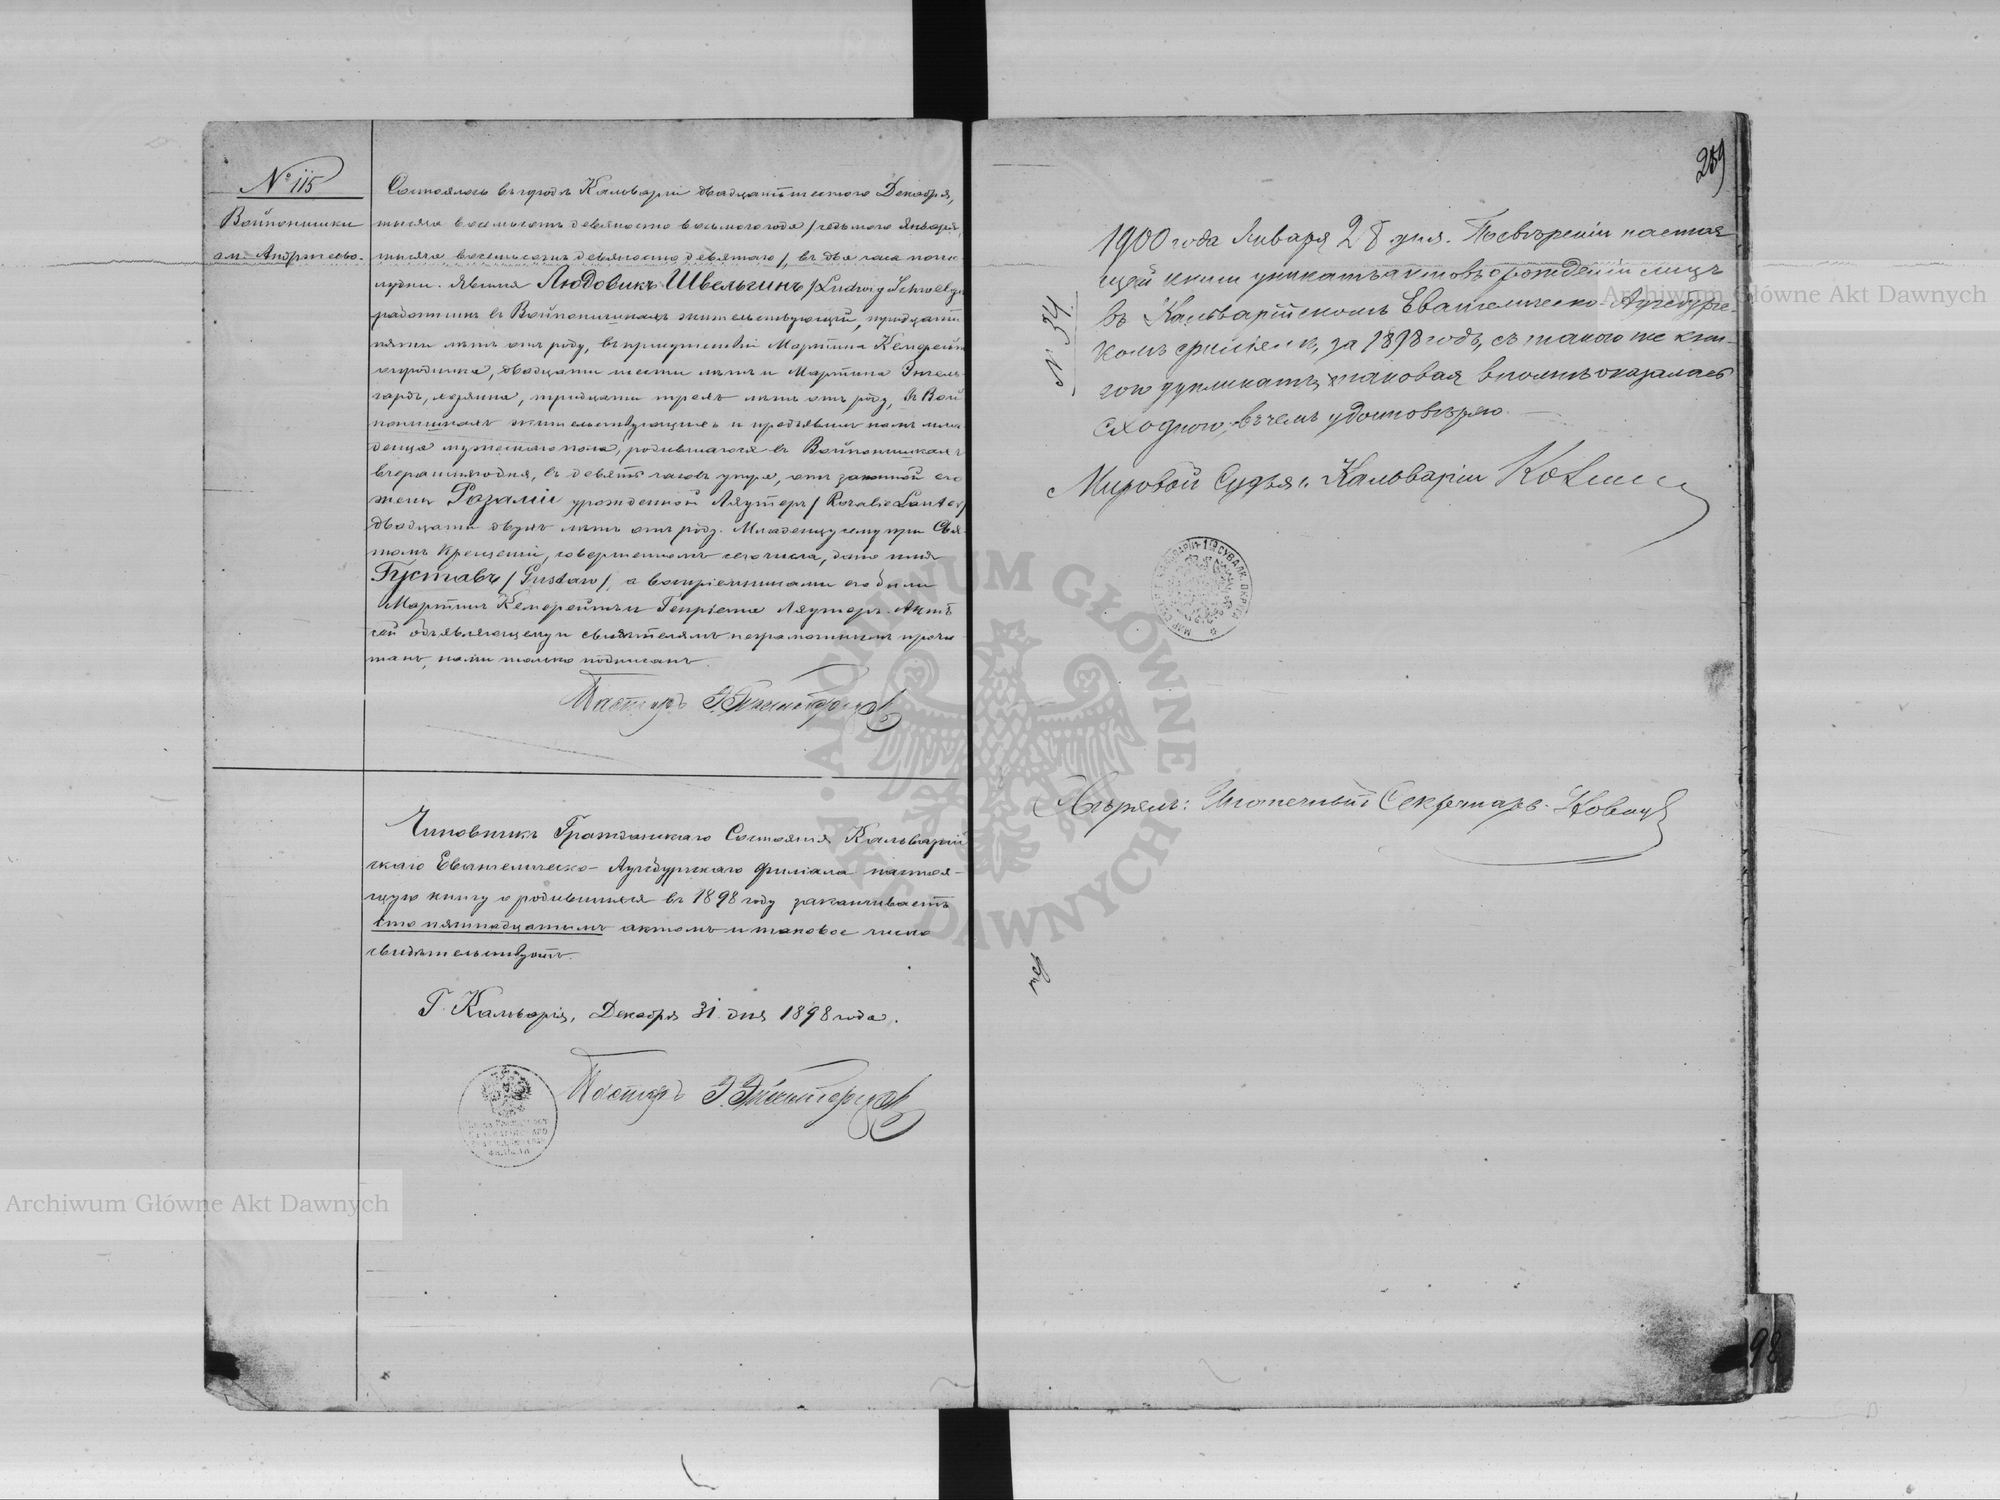 № 115
Войпонишки
ам. Андржеево.
Состоялось въ городѣ Кальваріи двадцать шестого Декабря,
тысяча восемьсотъ девяносто восьмого года /седьмого Января,
тысяча восемьсотъ девяносто девятаго/, въ два часа попо-
лудни. Явился Людовикъ Швельгинъ /Ludwig Schwellgin
работникъ въ Войпонишкахъ жительствующій, тридцати
пяти лѣтъ отъ роду, въ присутствіи Мартина
огородника, двадцати шести лѣтъ и Мартина Энгель-
гардъ, хозяина, тридцати трехъ лѣтъ отъ роду, въ Вой
понишкахъ жительствующихъ и предъявилъ намъ мла-
денца мужескаго пола, родившагося въ Войпонишкахъ
вчерашняго дня, въ девять часовъ утра, отъ законной его
жены Розаліи урожденной Ляутеръ /Rozalie Lauter/
двадцати двухъ лѣтъ отъ роду. Младенцу сему при Свя-
томъ Крещеніи, совершенномъ сего числа, дано имя
Густавъ /Gustaw/, а воспріемниками его были
Мартинъ и Генріета Ляутеръ. Актъ
сей объявляющему и свидѣтелямъ неграмотнымъ прочи
танъ, нами только подписанъ.
Пасторъ
Чиновникъ Гражданскаго Состоянія Кальварій
скаго Евангелическо-Аугсбургскаго Филіала настоя-
щую книгу о родившихся въ 1898 году заканчиваетъ
сто пятнадцатымъ актомъ и таковое число
свидѣтельствуетъ.
Г. Кальварія, Декабря 31 дня 1898 года.
Пасторъ
259
№ 34
1900 года Января 28 дня. По свѣреніи настоя
щей книги уникатъ актовъ о рожденіи лицъ
въ Кальварійскомъ Евангелическо-Аугсбургс-
комъ филіялѣ, за 1898 годъ, съ такою же кни-
гою дупликатъ, таковая вполнѣ оказалась
сходною, въ чемъ удостовѣряю.
Мировой Судья г. Кальваріи
Свѣрялъ: Ипотечный Секретарь
98
Archiwum Główne Akt Dawnych
Archiwum Główne Akt Dawnych
ARCHIWUM GŁÓWNE AKT DAWNYCH